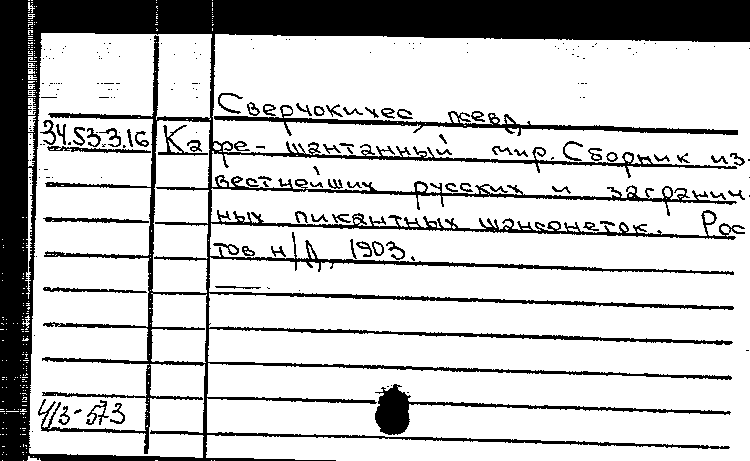 Сверчокихес, псевд.
34.53.3.16 Кафе-шантанный мир. Сборник из-
вестнейших русских и загранич-
ных пикантных шансонеток. Рос
тов н/Д, 1903.
413-573